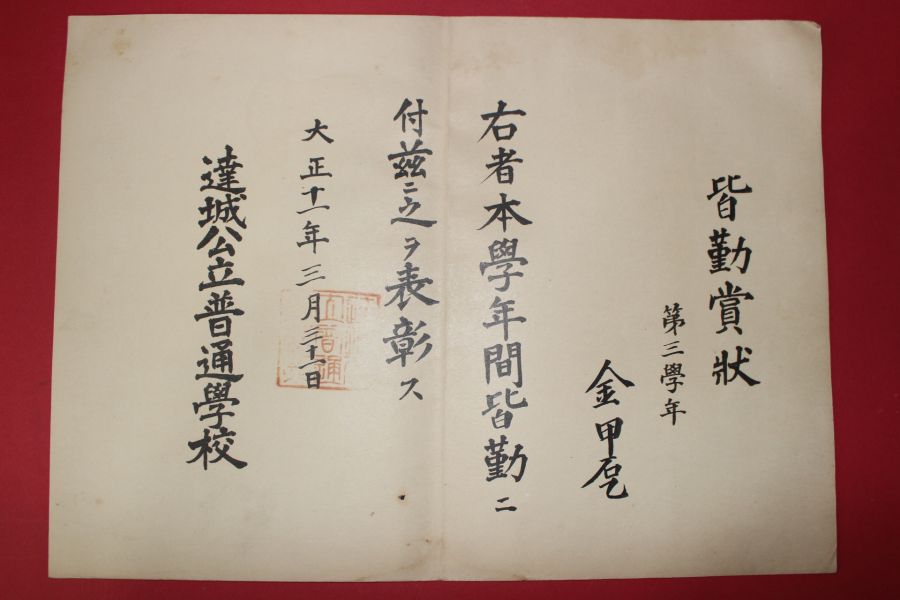 皆勤賞狀
第三學年
金甲乭
右者本學年間皆勤ニ
付茲ニ之ヲ表彰ス
大正十一年三月三十一日
達城公立普通學校